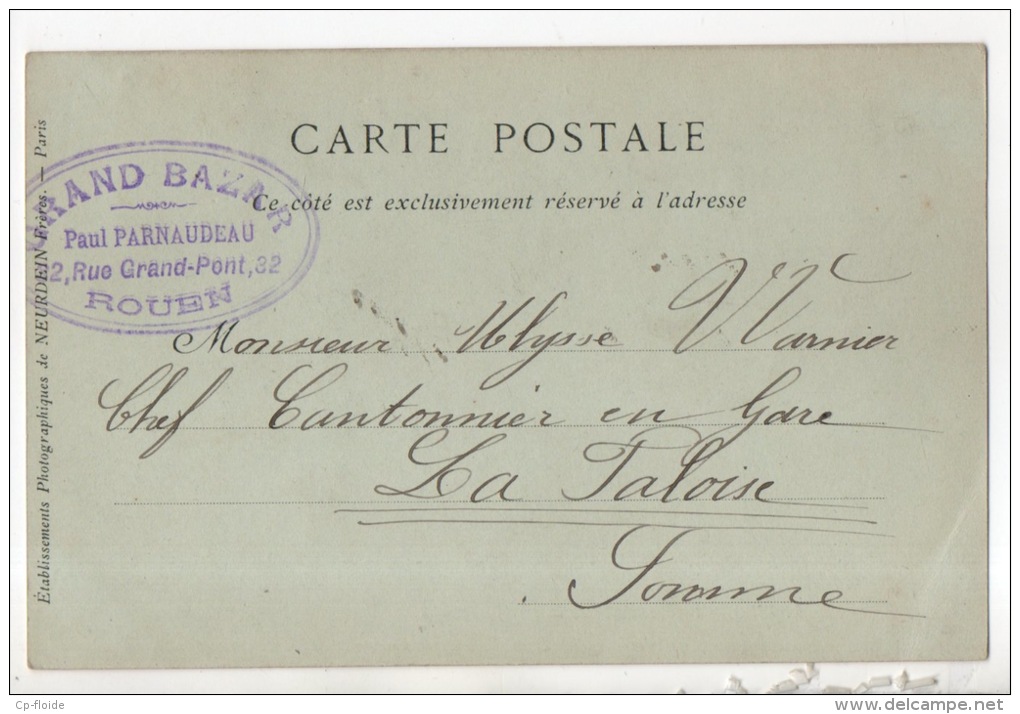 CARTE POSTALE
Ce côté est exclusivement réservé à l'adresse
GRAND BAZAR
Paul PARNAUDEAU
32, Rue Grand-Pont, 32
ROUEN
Établissements Photographiques de NEURDEIN Frères. — Paris
Monsieur Ulysse Warnier
Chef Cantonnier en Gare
La Faloise
Somme
Cp-floide
delcampe.net